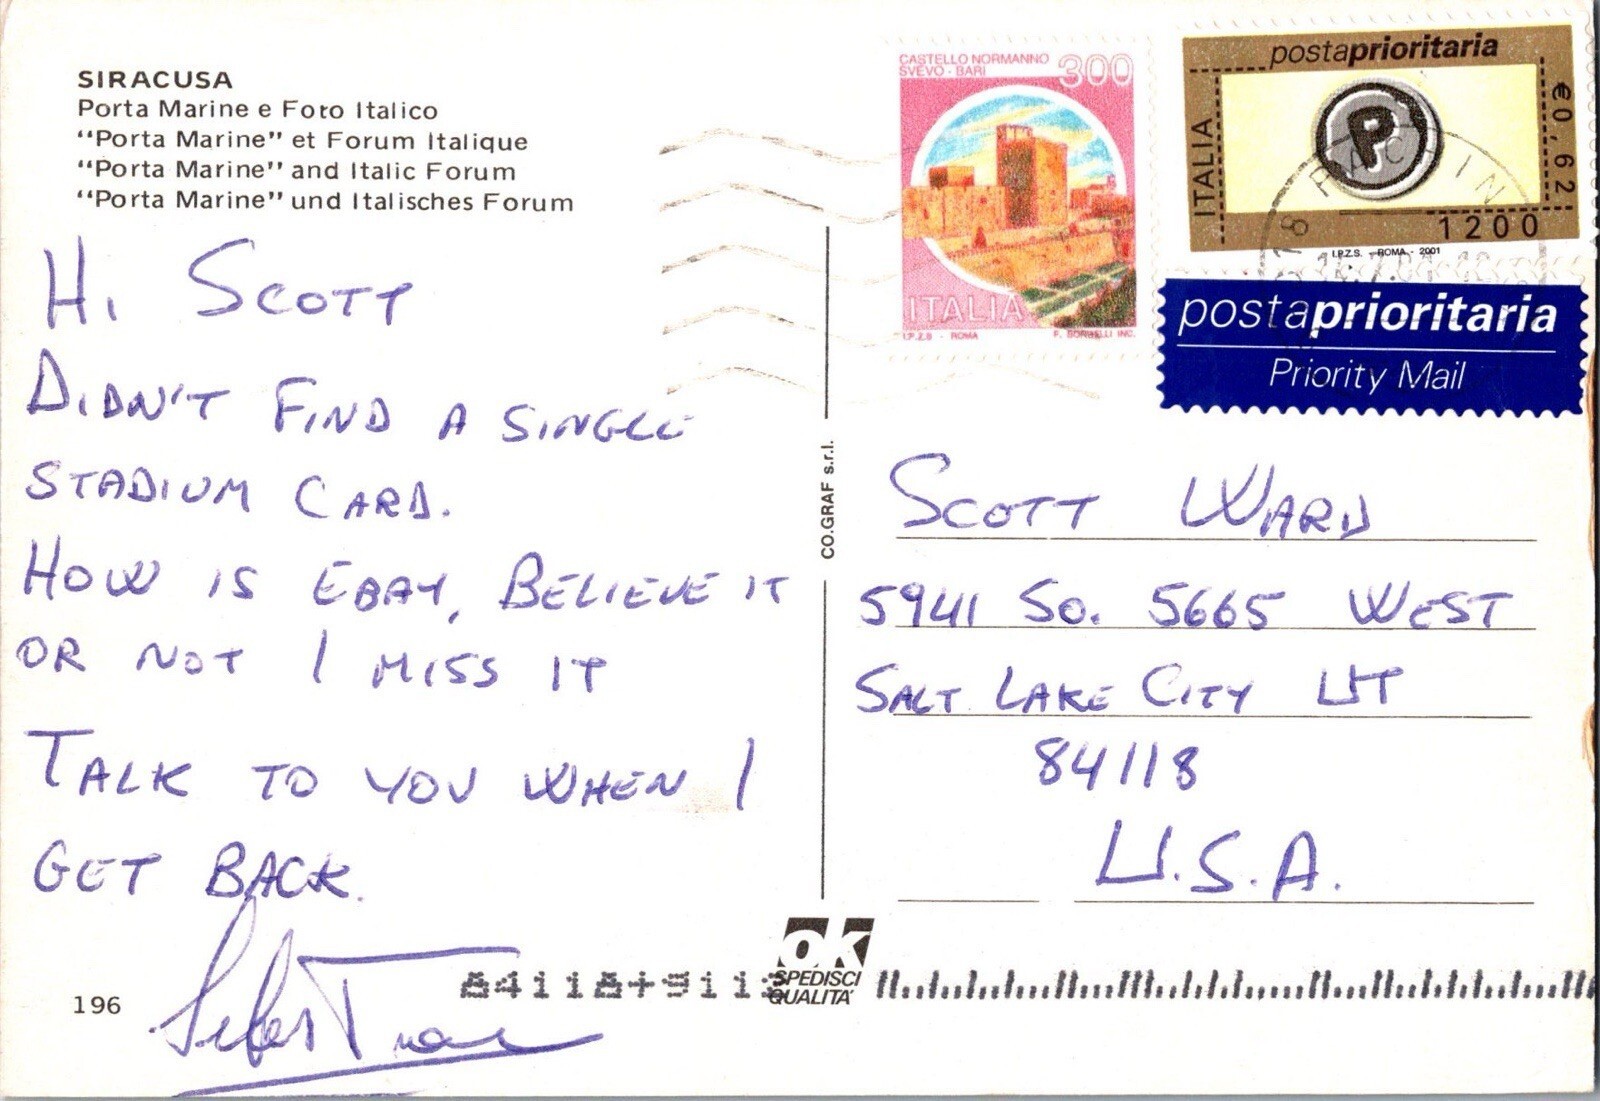 SIRACUSA
Porta Marine e Foro Italico
"Porta Marine" et Forum Italique
"Porta Marine" and Italic Forum
"Porta Marine" und Italisches Forum
HI SCOTT
DIDN'T FIND A SINGLE
STADIUM CARD.
HOW IS EBAY, BELIEVE IT
OR NOT I MISS IT
TALK TO YOU WHEN I
GET BACK.
196
CO.GRAF s.r.l.
CASTELLO NORMANNO
SVEVO - BARI
300
ITALIA
I.P.Z.S. - ROMA
postaprioritaria
ITALIA
P
€0,62
1200
I.P.Z.S. - ROMA - 2001
PACHIN
postaprioritaria
Priority Mail
SCOTT WARD
5941 SO. 5665 WEST
SALT LAKE CITY UT
84118
U.S.A.
ok
SPEDISCI
QUALITA'